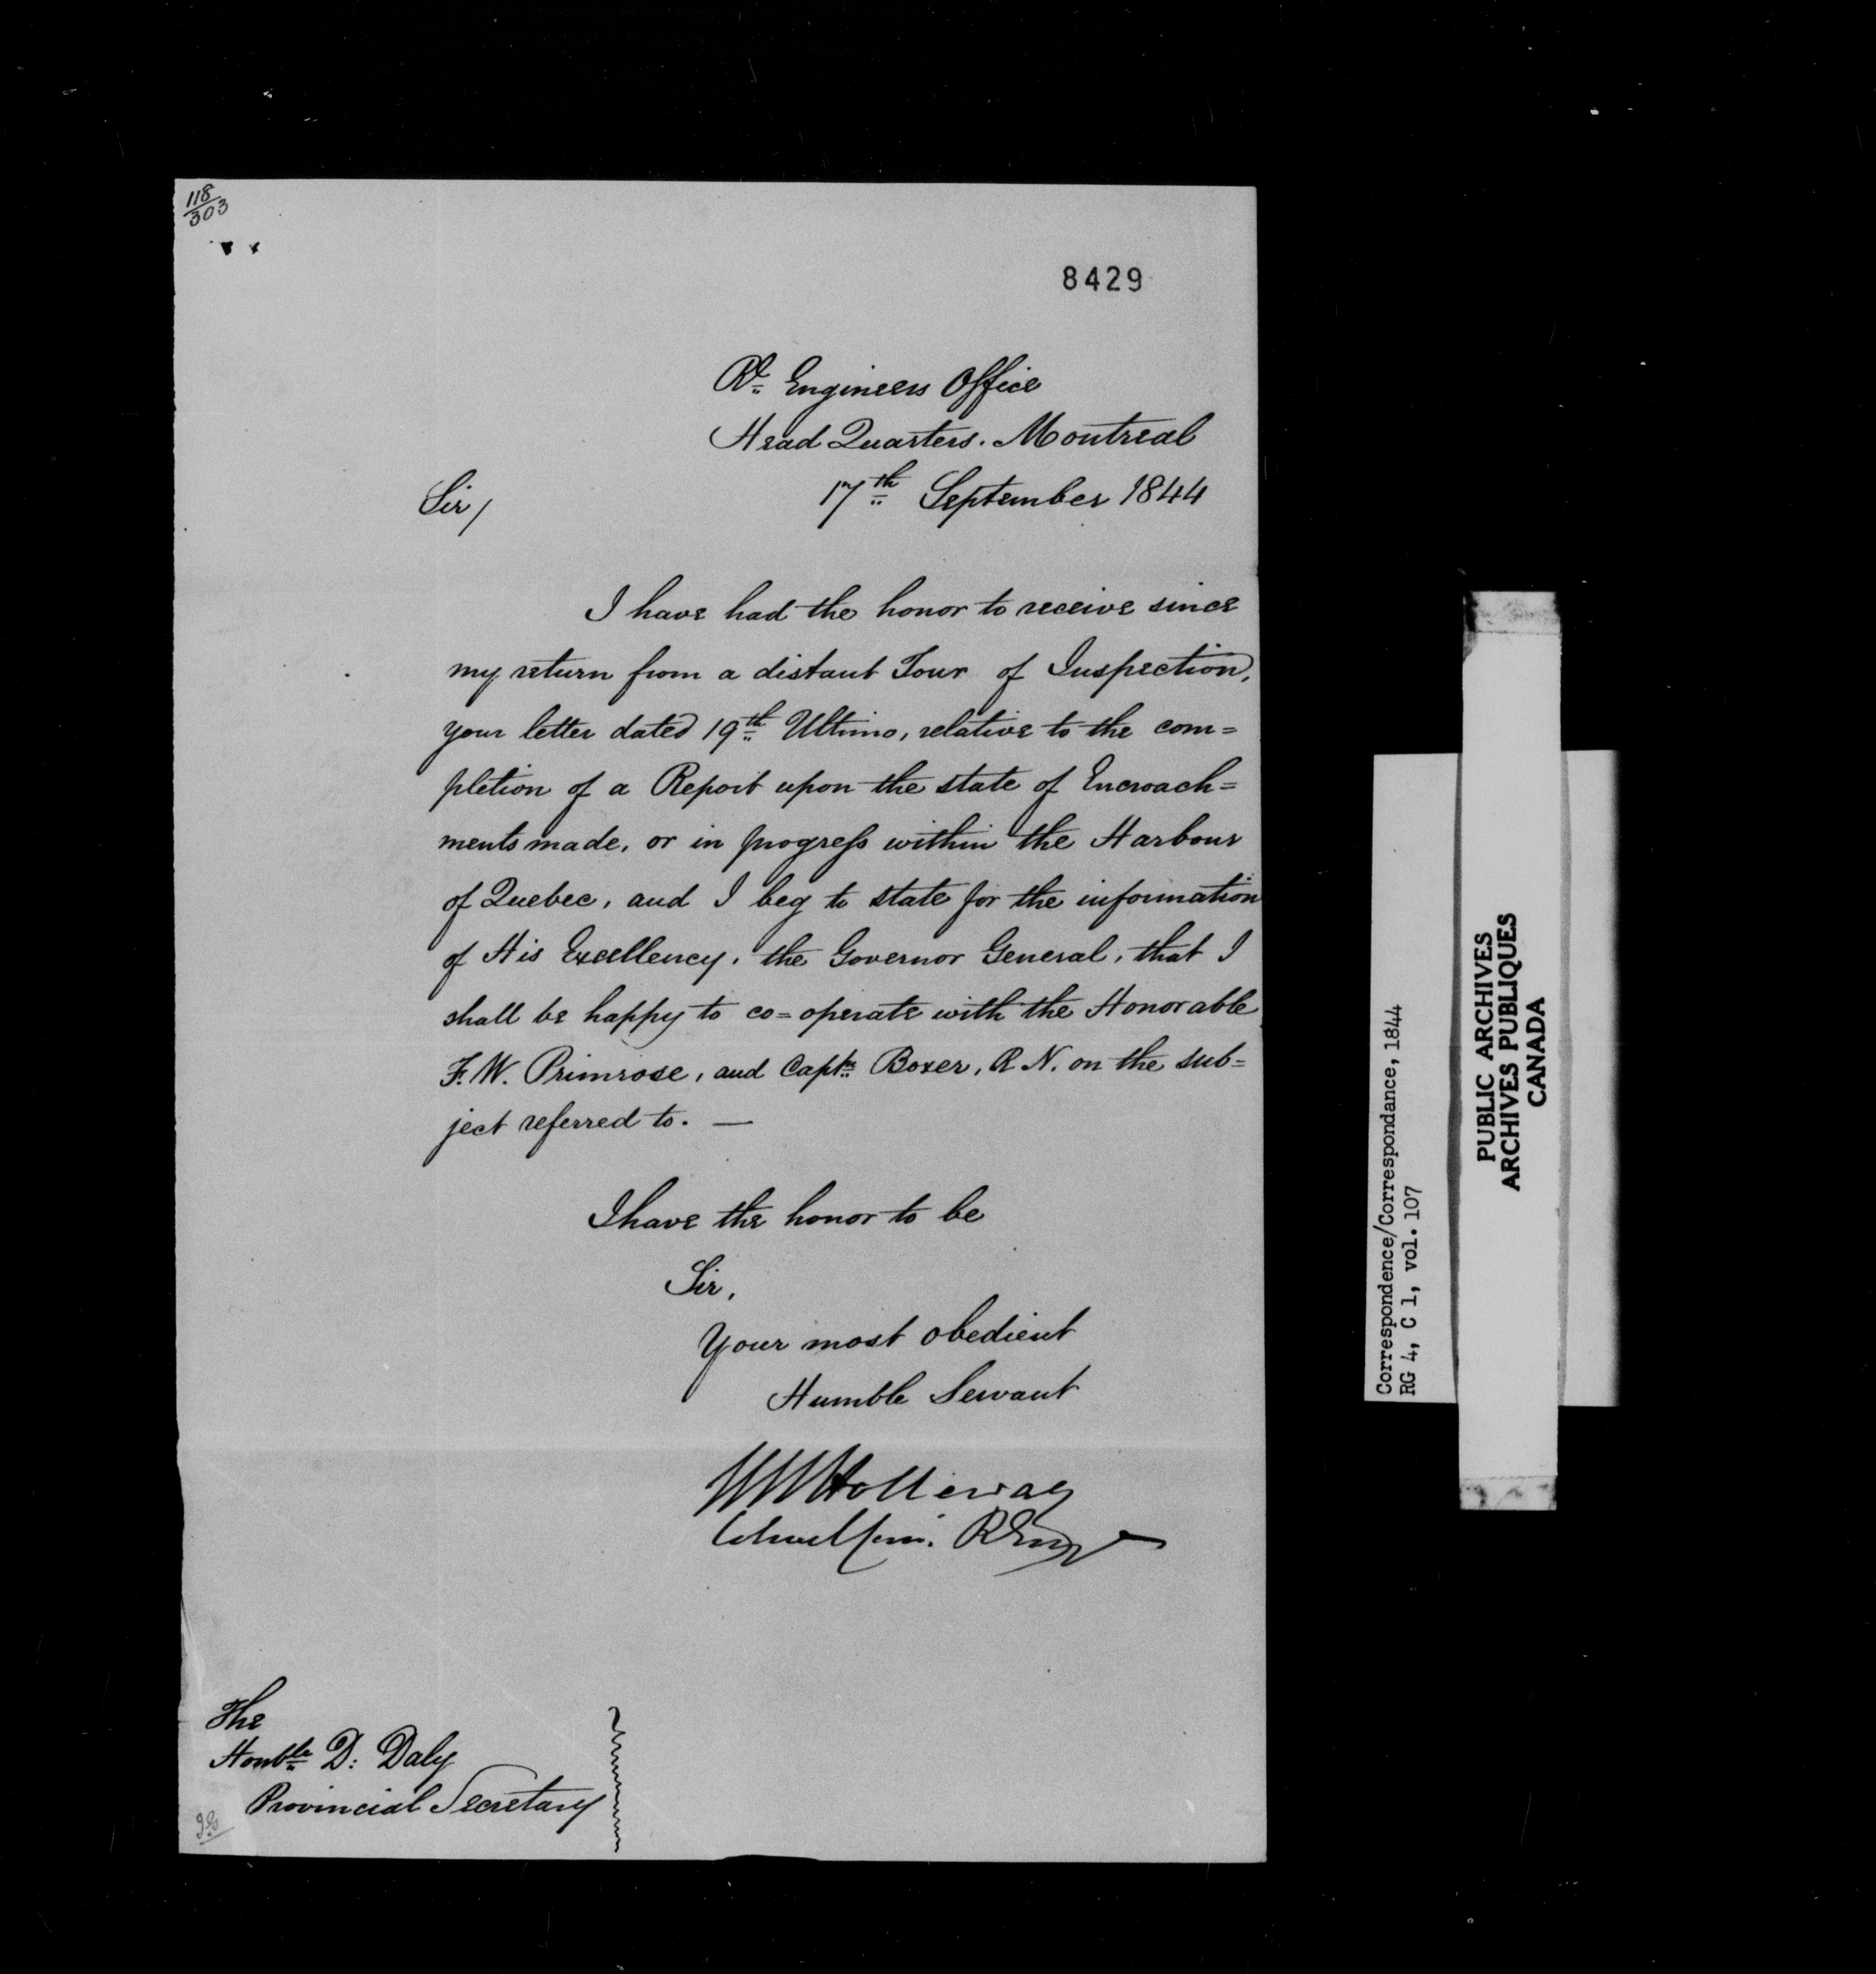 118
303
8429
Rl. Engineers Office
Head Quarters. Montreal
17th September 1844
Sir/
I have had the honor to receive since
my return from a distant Tour of Inspection,
your letter dated 19th Ultimo, relative to the com=
pletion of a Report upon the state of Encroach=
ments made, or in progress within the Harbour
of Quebec, and I beg to state for the information
of His Excellency, the Governor General, that I
shall be happy to co=operate with the Honorable
F. W. Primrose, and Captn. Boxer, R.N. on the sub=
ject referred to. —
I have the honor to be
Sir,
Your most obedient
Humble Servant
Holloway
REng
The
Honble D: Daly
Provincial Secretary
Correspondence/Correspondance, 1844
RG 4, C 1, vol. 107
PUBLIC ARCHIVES
ARCHIVES PUBLIQUES
CANADA